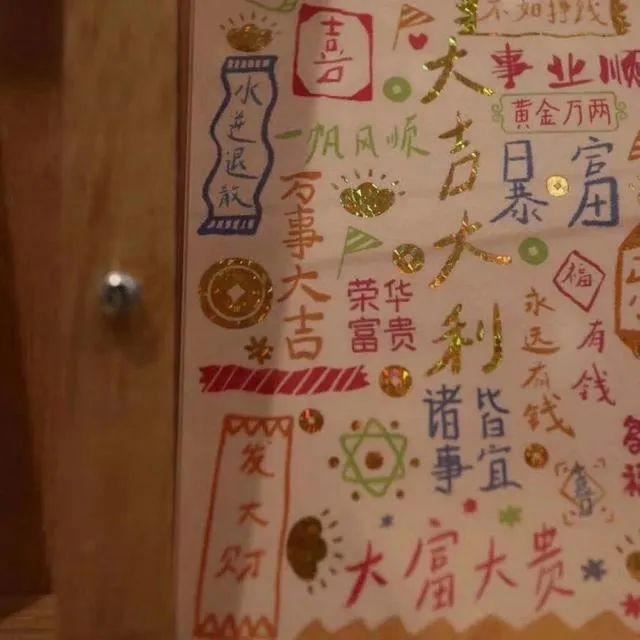 不如挣钱
事业顺
黄金万两
喜
水逆退散
大吉大利
一帆风顺
日暴
富
万事大吉
福
荣华
富贵
永远有钱
有钱
诸事
皆宜
发大财
大富大贵